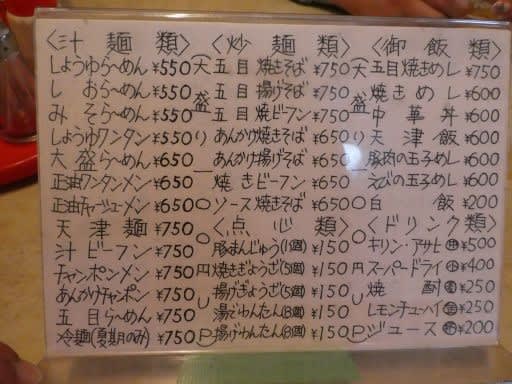 〈汁麺類〉
しょうゆらーめん ¥550
しおらーめん ¥550
みそらーめん ¥550
しょうゆワンタン ¥550
大盛らーめん ¥650
正油ワンタンメン ¥650
正油チャーシューメン ¥650
天津麺 ¥750
汁ビーフン ¥750
チャンポンメン ¥750
あんかけチャンポン ¥750
五目らーめん ¥750
冷麺(夏期のみ) ¥750
〈炒麺類〉
五目焼きそば ¥750
五目揚げそば ¥750
五目焼ビーフン ¥750
あんかけ焼きそば ¥650
あんかけ揚げそば ¥650
焼きビーフン ¥650
ソース焼きそば ¥650
(大盛り一〇〇円UP)
〈点心類〉
豚まんじゅう(1個) ¥150
焼きぎょうざ(5個) ¥150
揚げぎょうざ(5個) ¥150
湯でわんたん(8個) ¥150
揚げわんたん(8個) ¥150
〈御飯類〉
五目焼きめし ¥750
焼きめし ¥600
中華丼 ¥600
天津飯 ¥600
豚肉の玉子めし ¥600
えびの玉子めし ¥600
白飯 ¥200
(大盛り一〇〇円UP)
〈ドリンク類〉
キリン・アサヒ ¥500
スーパードライ ¥400
焼酎 ¥250
レモンチューハイ ¥250
ジュース ¥200